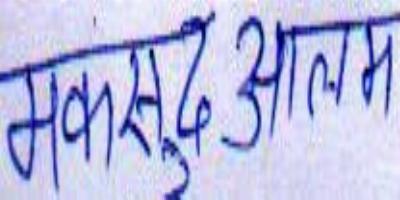 मकसुद आलम